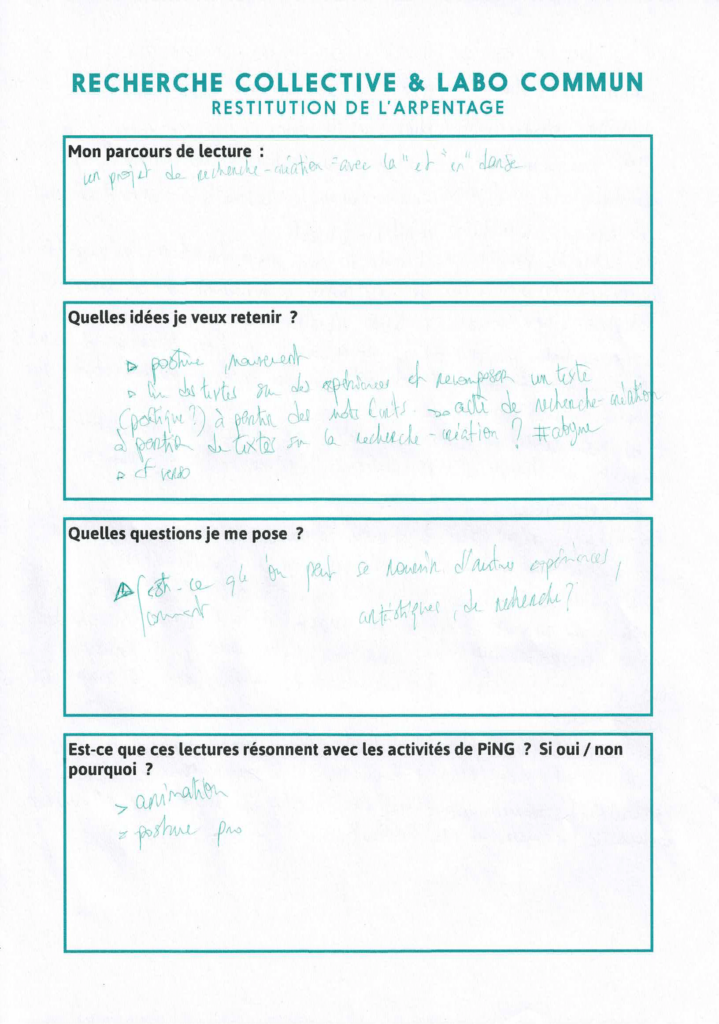 RECHERCHE COLLECTIVE & LABO COMMUN
RESTITUTION DE L'ARPENTAGE
Mon parcours de lecture :
un projet de recherche-création = avec la " et "en" danse
Quelles idées je veux retenir ?
▷ posture, mouvement
▷ lire des textes sur des expériences et recomposer un texte
(poétique?) à partir des mots écrits. → acte de recherche-création
à partir de textes sur la recherche-création ? #abyme
▷ cf verso
Quelles questions je me pose ?
est-ce qu'on peut se nourrir d'autres expériences,
comment artistiques, de recherche?
Est-ce que ces lectures résonnent avec les activités de PiNG ? Si oui / non
pourquoi ?
> animation
= posture pro